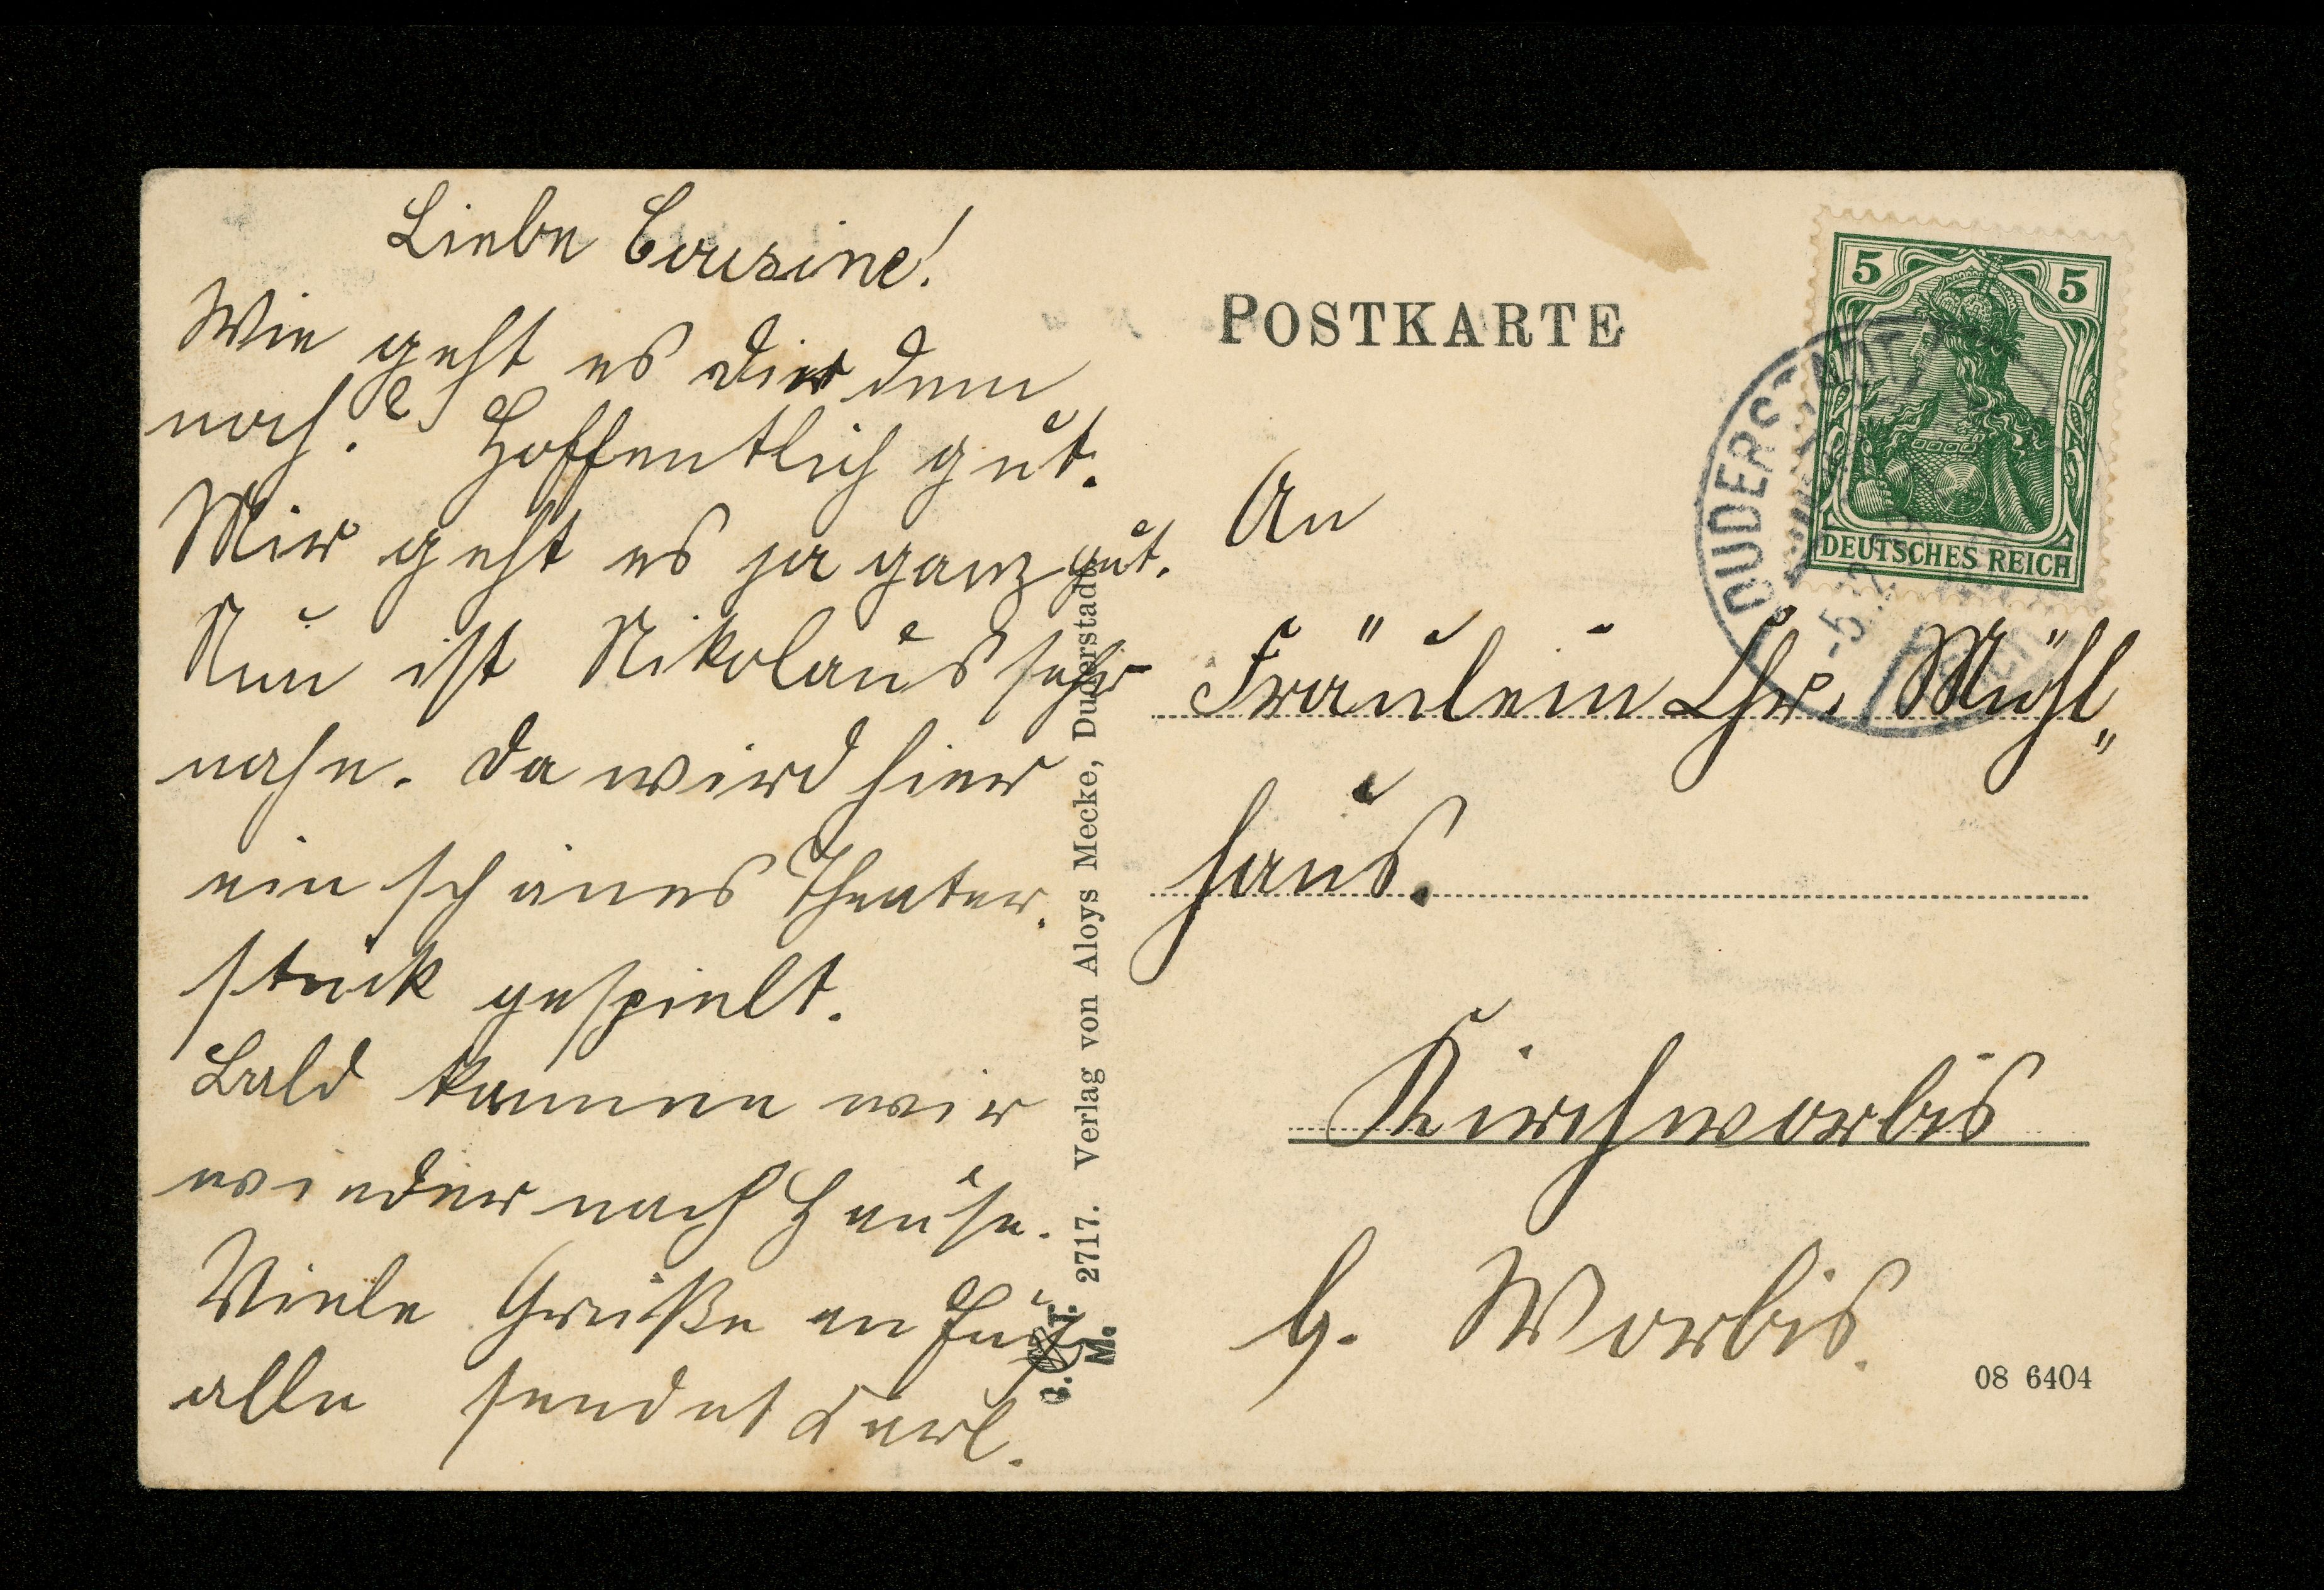 Liebe Cousine!
Wie geht es dir denn
noch? Hoffentlich gut.
Mir geht es ja ganz gut.
Nun ist Nikolaus sehr
nahe. Da wird hier
ein schönes Theater-
stück gespielt.
Bald kommen wir
wieder nach Hause.
Viele Grüße an Euch
alle sendet Karl.
Verlag von Aloys Mecke, Duderstadt.
2717.
POSTKARTE
5 5
DEUTSCHES REICH
DUDERSTADT
-5.12.
An
Fräulein Chr. Mühl„
haus.
Kirchworbis
b. Worbis.
08 6404